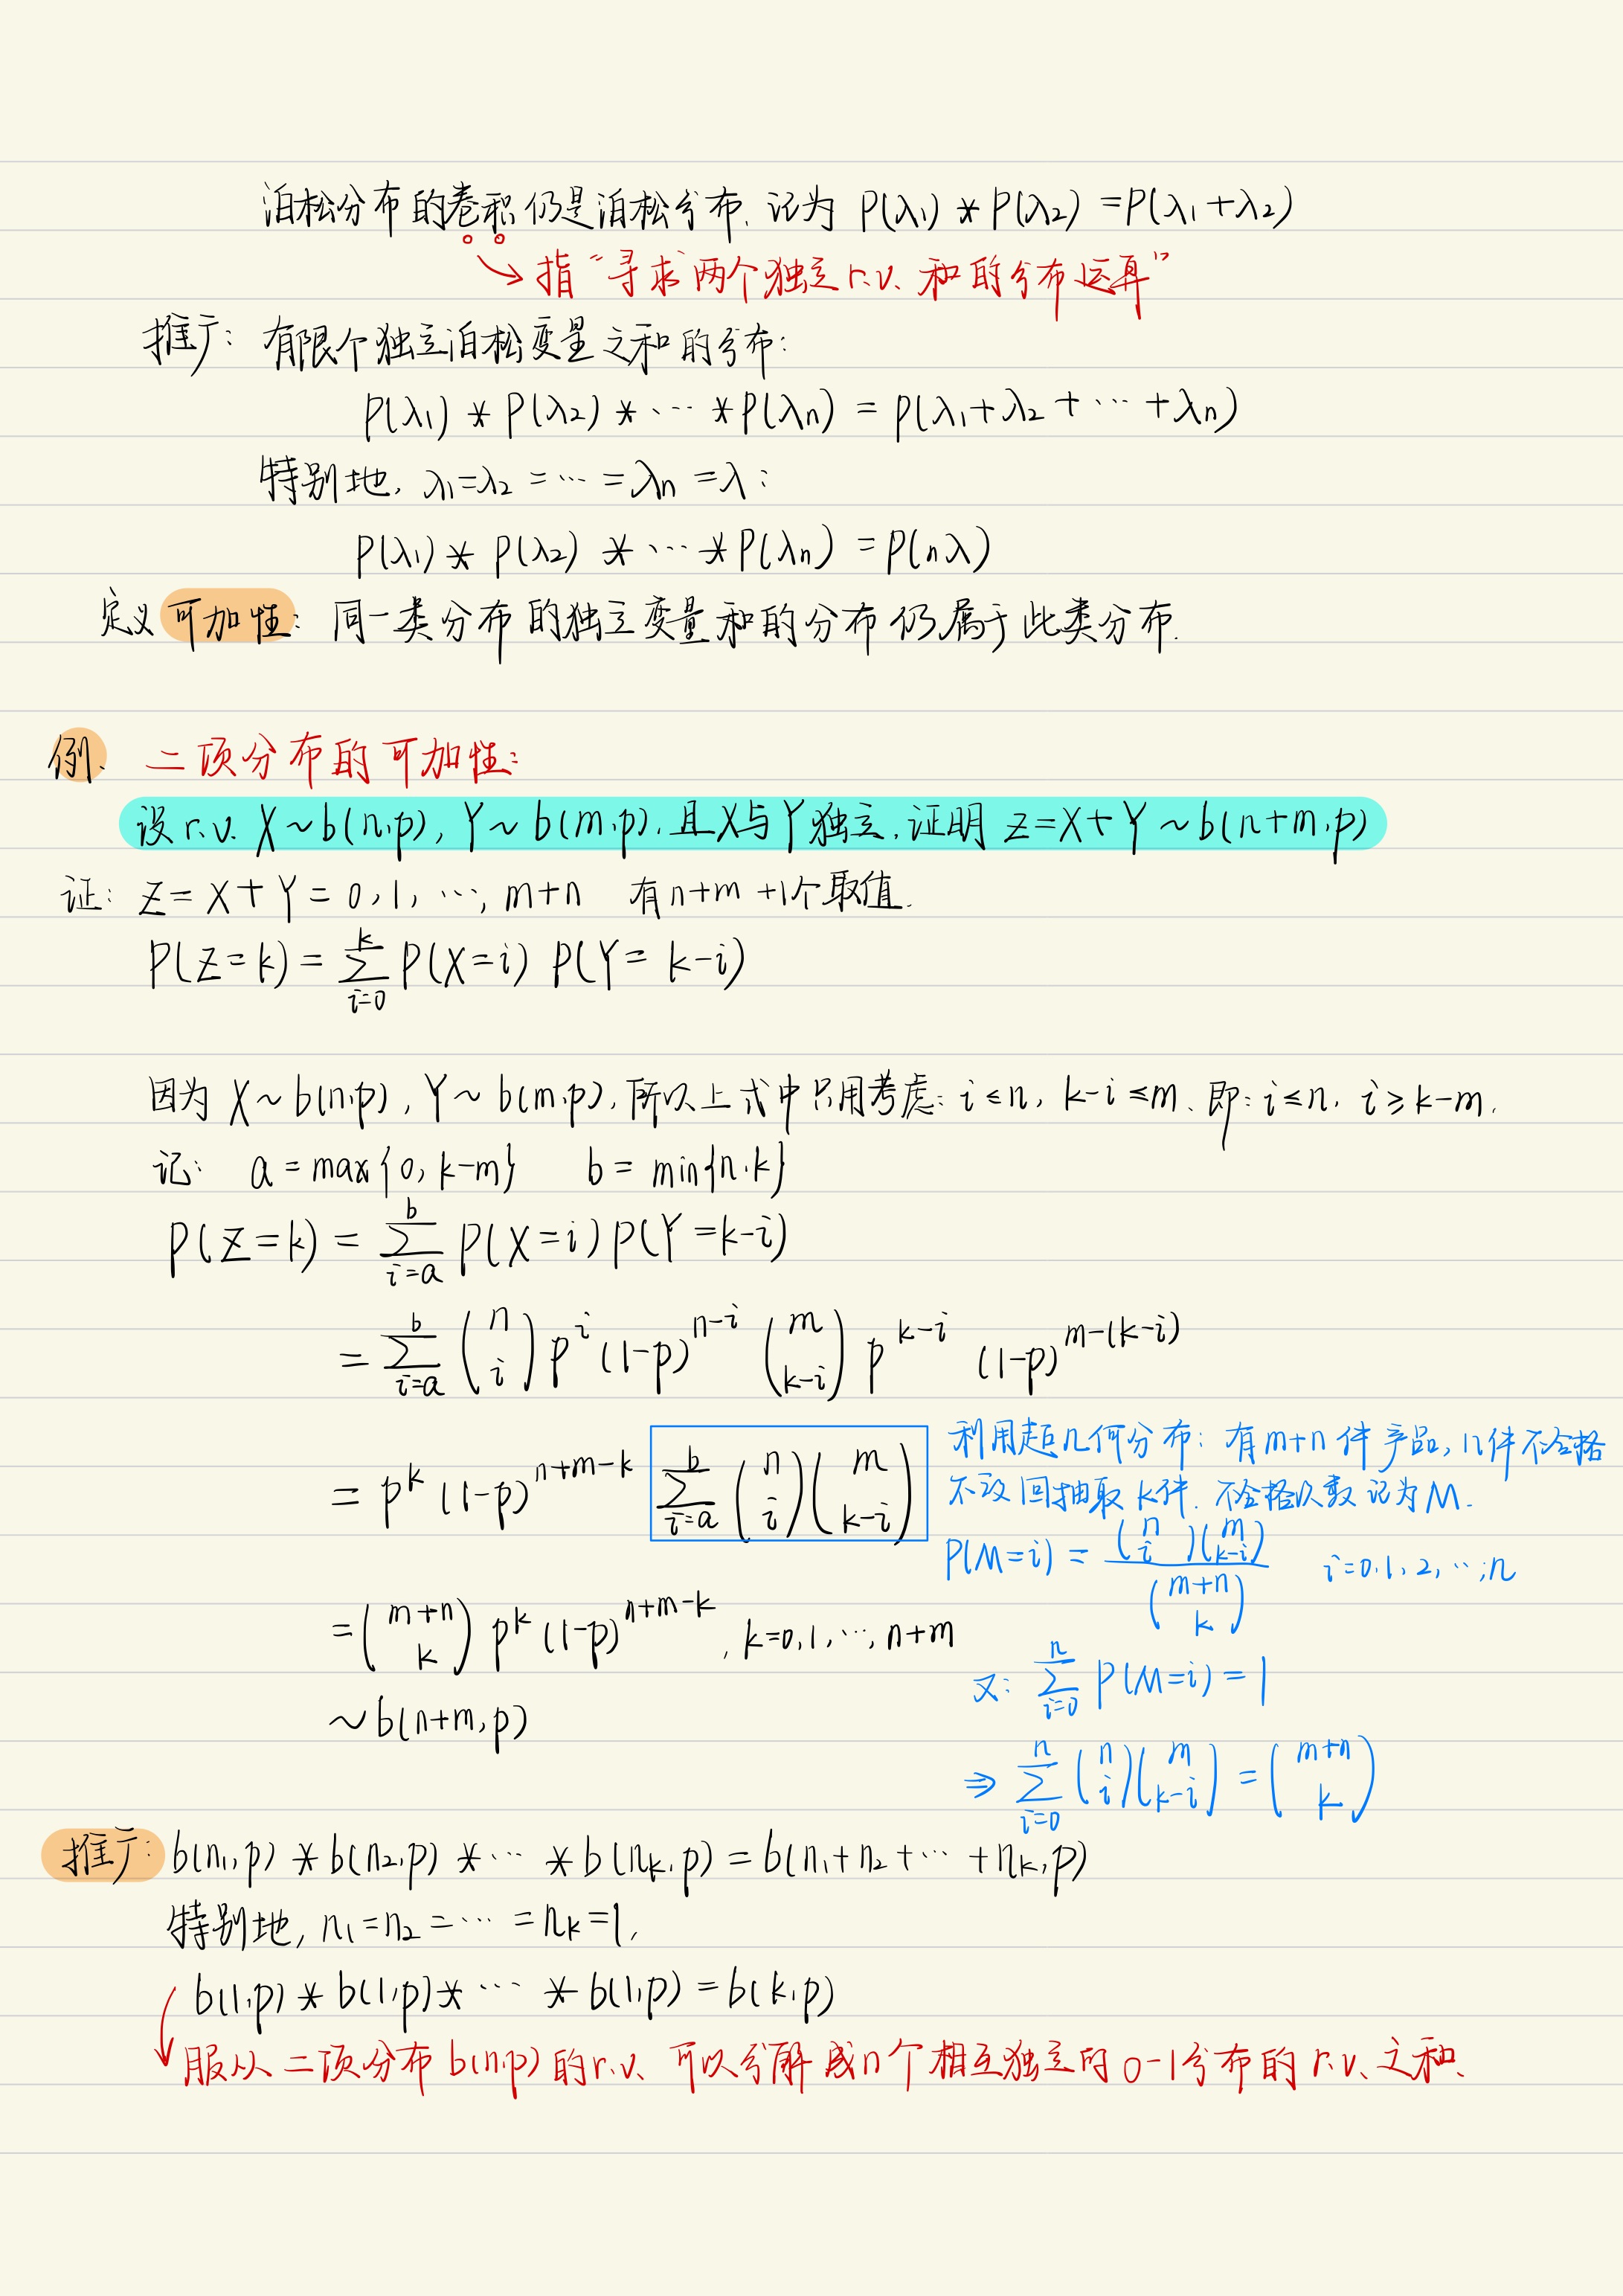 泊松分布的卷积仍是泊松分布, 记为 P(λ₁) * P(λ₂) = P(λ₁+λ₂)
↘ 指“寻求两个独立r.v.和的分布运算”
推广: 有限个独立泊松变量之和的分布:
P(λ₁) * P(λ₂) * ⋯ * P(λn) = P(λ₁+λ₂+⋯+λn)
特别地, λ₁=λ₂=⋯=λn=λ:
P(λ₁) * P(λ₂) * ⋯ * P(λn) = P(nλ)
定义 可加性: 同一类分布的独立变量和的分布仍属于此类分布.
例. 二项分布的可加性:
设r.v. X~b(n,p), Y~b(m,p), 且X与Y独立, 证明 Z=X+Y~b(n+m,p)
证: Z=X+Y=0,1,⋯,m+n 有n+m+1个取值.
P(Z=k) = ∑_{i=0}^{k} P(X=i) P(Y=k-i)
因为 X~b(n,p), Y~b(m,p), 所以上式中只用考虑: i≤n, k-i≤m、即: i≤n, i≥k-m.
记: a=max{0, k-m} b=min{n,k}
P(Z=k) = ∑_{i=a}^{b} P(X=i) P(Y=k-i)
= ∑_{i=a}^{b} (n i) p^i (1-p)^{n-i} (m k-i) p^{k-i} (1-p)^{m-(k-i)}
= p^k (1-p)^{n+m-k} ∑_{i=a}^{b} (n i)(m k-i)
利用超几何分布: 有m+n件产品, n件不合格
不放回抽取k件, 不合格次数记为M.
P(M=i) = (n i)(m k-i) / (m+n k) i=0,1,2,⋯,n
= (m+n k) p^k (1-p)^{n+m-k}, k=0,1,⋯,n+m
又: ∑_{i=0}^{n} P(M=i) = 1
~b(n+m,p)
⇒ ∑_{i=0}^{n} (n i)(m k-i) = (m+n k)
推广: b(n₁,p) * b(n₂,p) * ⋯ * b(nk,p) = b(n₁+n₂+⋯+nk,p)
特别地, n₁=n₂=⋯=nk=1,
b(1,p) * b(1,p) * ⋯ * b(1,p) = b(k,p)
服从二项分布b(n,p)的r.v.可以分解成n个相互独立的0-1分布的r.v.之和.